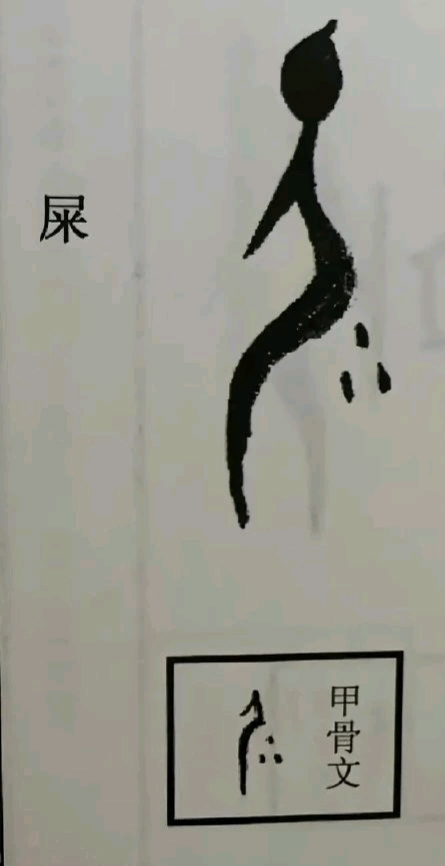 屎
甲骨文